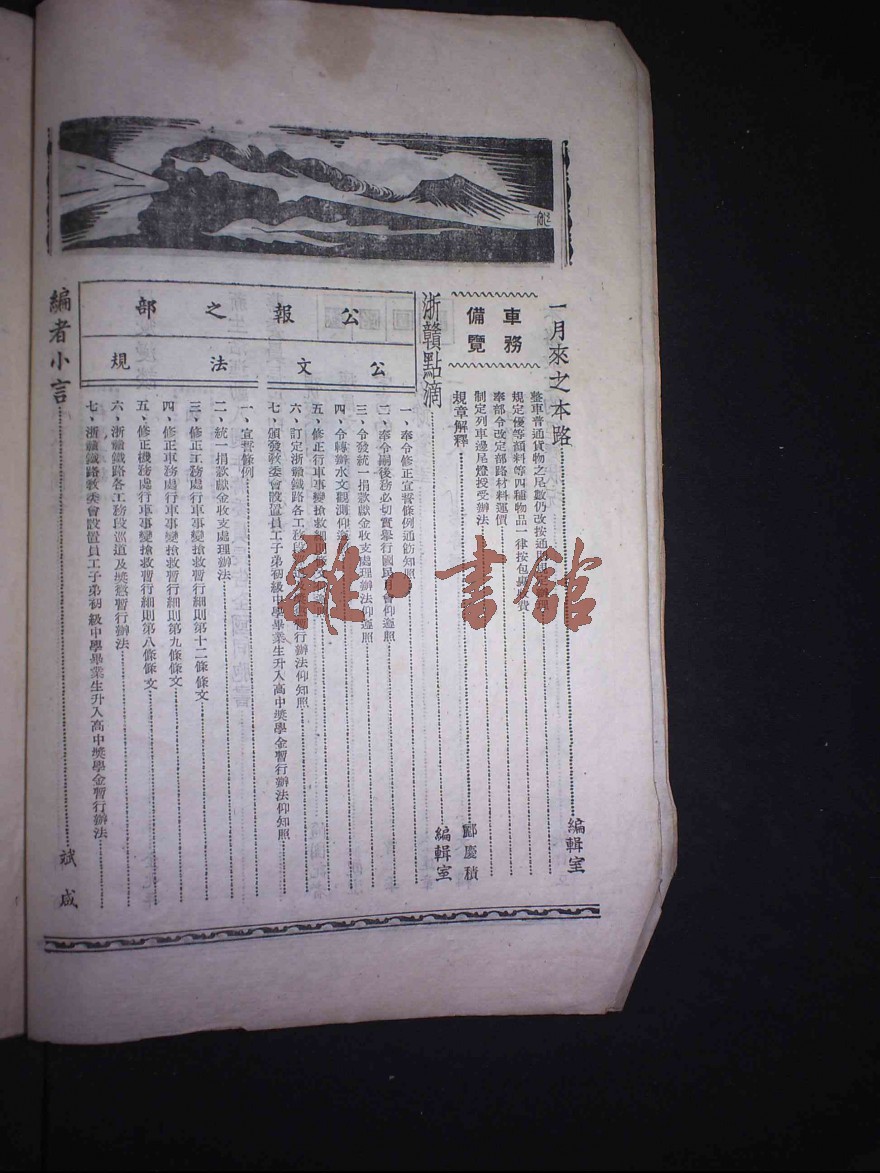 一月來之本路 編輯室
車務備覽
整車普通貨物之尾數仍改按通
規定優等顏料等四種物品一律按包裹 費
奉部令改定部路材料運價
制定列車邊尾燈授受辦法
規章解釋 酈慶積
浙贛點滴 編輯室
公報之部
公文
一、奉令修正宣誓條例通飭知照
二、奉令嗣後務必切實舉行國民月會仰遵照
三、令發統一捐款獻金收支處理辦法仰遵照
四、令轉辦水文觀測仰
五、修正行車事變搶救細則條文
六、訂定浙贛鐵路各工務段 暫行辦法仰知照
七、頒發教委會設置員工子弟初級中學畢業生升入高中獎學金暫行辦法仰知照
法規
一、宣誓條例
二、統一捐款獻金收支處理辦法
三、修正工務處行車事變搶救暫行細則第十二條條文
四、修正車務處行車事變搶救暫行細則第九條條文
五、修正機務處行車事變搶救暫行細則第八條條文
六、浙贛鐵路各工務段巡道及獎懲暫行辦法
七、浙贛鐵路教委會設置員工子弟初級中學畢業生升入高中獎學金暫行辦法
編者小言 斌成
雜·書館